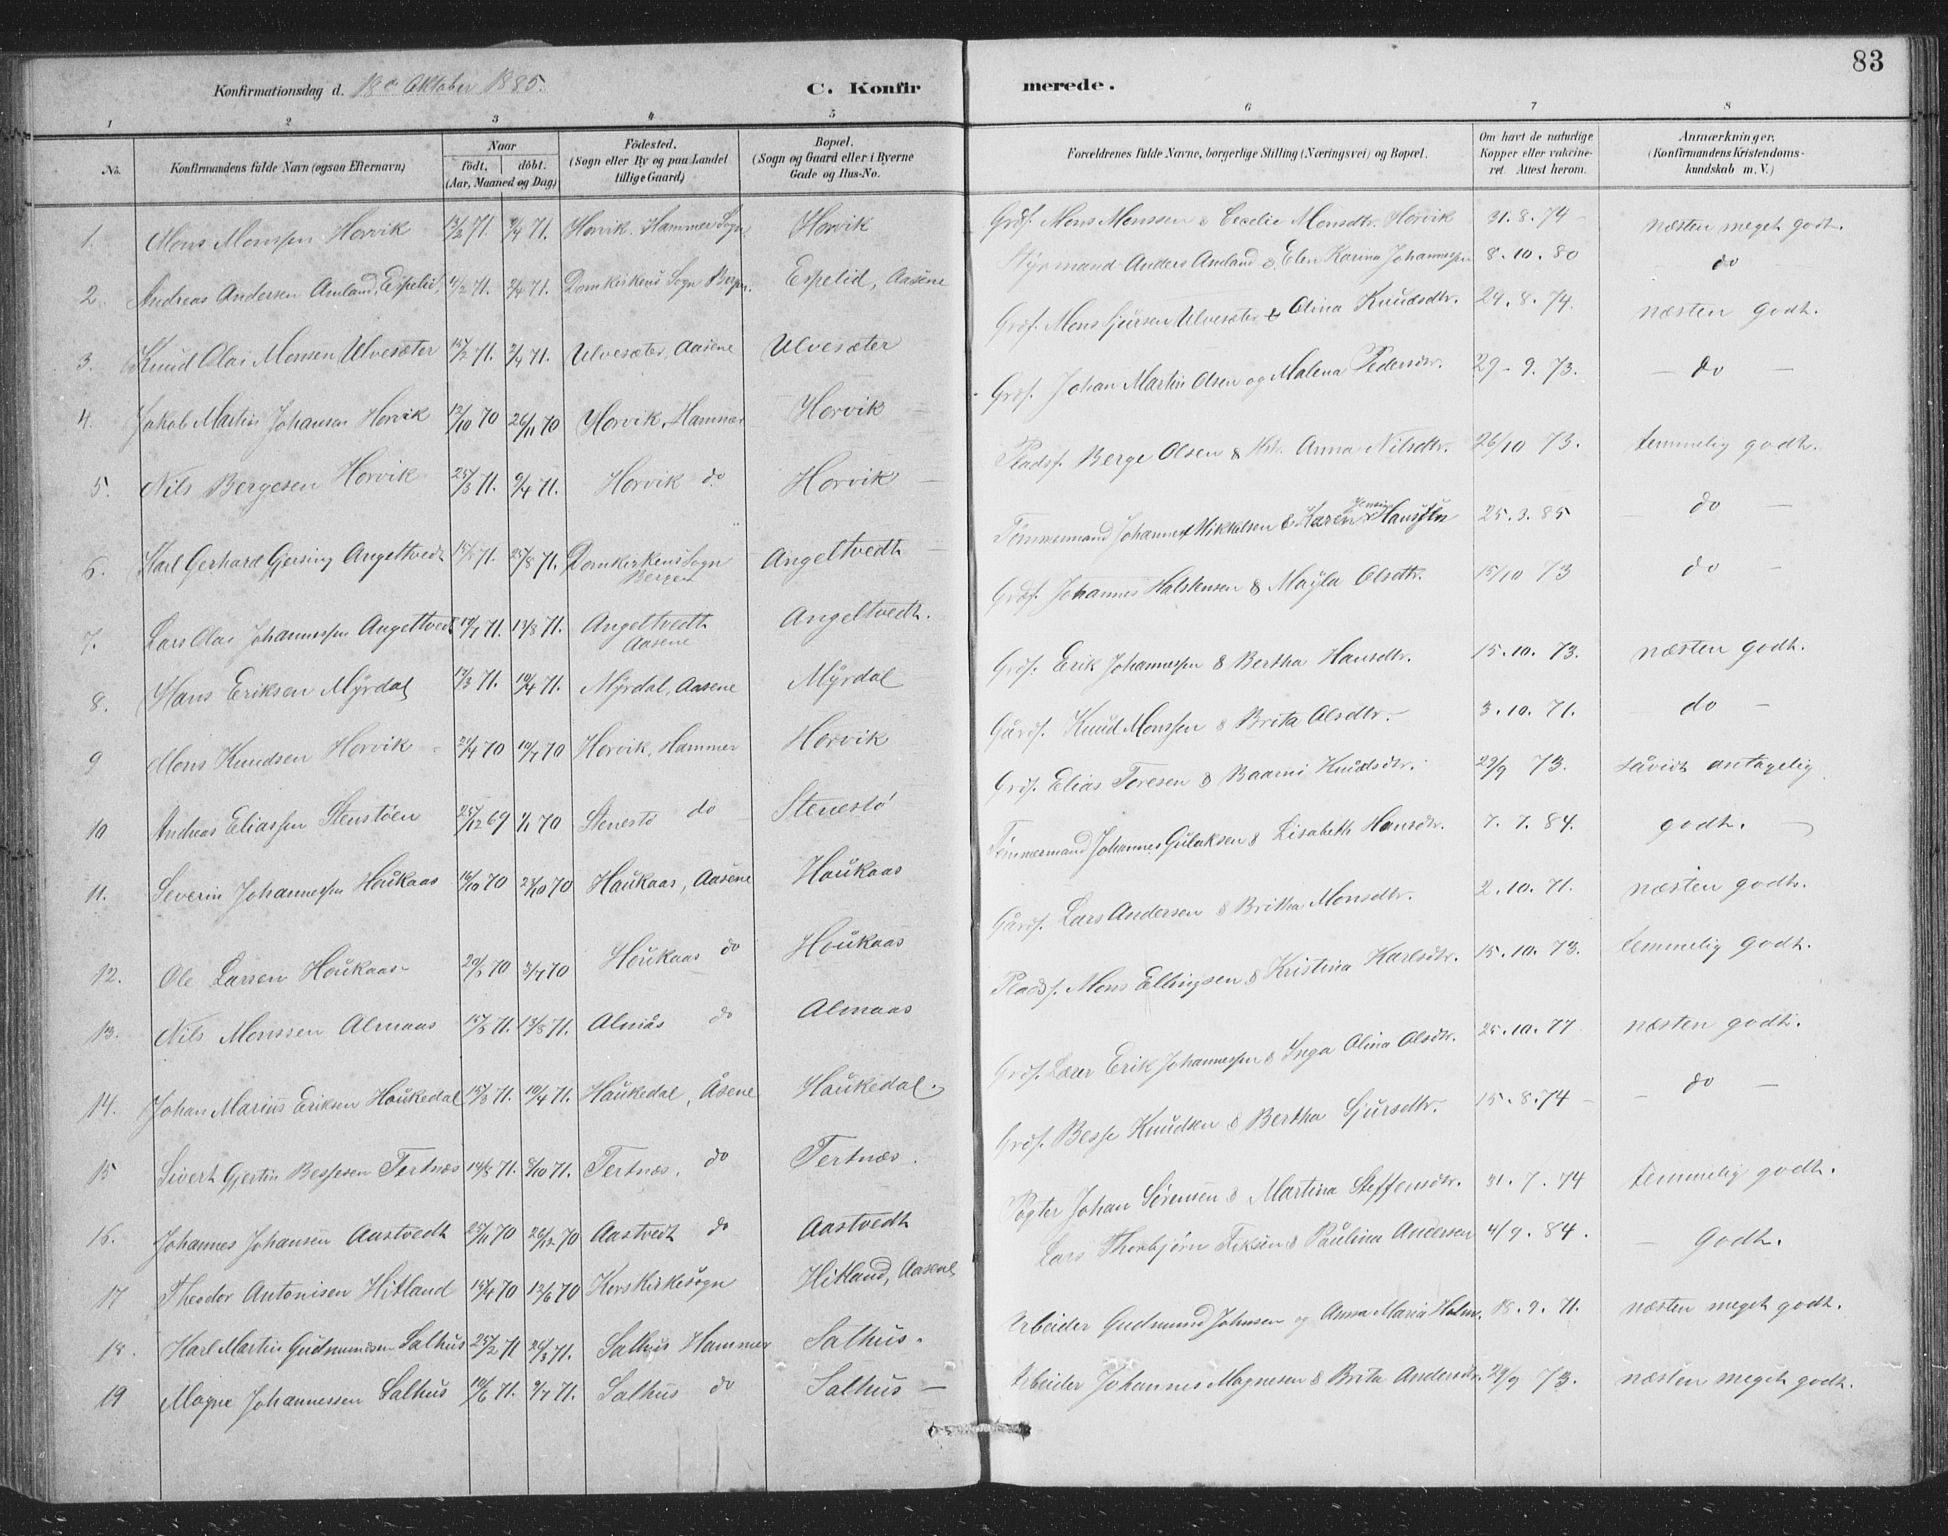 83
Konfirmationsdag d. 18de Oktober 1885.
C. Konfirmerede.
1 2 3 4 5 6 7 8
No.
Konfirmandens fulde Navn (ogsaa Efternavn)
Naar
født, døbt.
(Aar, Maaned og Dag)
Fødested.
(Sogn eller By og paa Landet
tillige Gaard)
Bopæl.
(Sogn og Gaard eller i Byerne
Gade og Hus-No.
Forældrenes fulde Navne, borgerlige Stilling (Næringsvei) og Bopæl.
Om havt de naturlige
Kopper eller vakcine-
ret. Attest herom.
Anmærkninger.
(Konfirmandens Kristendoms-
kundskab m. V.)
1. Mons Monssen Horvik 12/2 71. 9/4 71. Horvik. Hammer Sogn Horvik Grdf. Mons Monssen & Cecelie Monsdtr. Horvik 31.8.74 - næsten meget godt.
2. Andreas Andersen Amland, Espelid, 71. 71. Domkirkens Sogn Bergen. Espelid, Aasene Styrmand Anders Amland & Elen Karina Johannessen 8.10.80 do
3. Knud Olai Monsen Ulvesæter 15/2 71. 2/4 71. Ulvesæter, Aasene Ulvesæter Grdf. Mons Sjursen Ulvesæter & Olina Knudsdtr. 29.8.74. næsten godt.
4. Jakob Martin Johansen Horvik 12/10 70 26/11 70 Horvik, Hammer Horvik - Grdf. Johan Martin Olsen og Malena Pedersdtr. 29-9.73. - do -
5. Nils Bergesen Horvik 25/3 71. 9/4 71. Horvik do Horvik - Pladsf. Berge Olsen & Anna Nilsdtr. 26/10 73. temmelig godt.
6. Karl Gerhard Gjersing Angeltvedt 71. 25/8 71. Domkirkens Sogn Bergen Angeltvedt - Tømmermand Johannes Mikkelsen & Karen Hansen 25.3.85 - do -
7. Lars Olai Johannessen Angeltvedt 71. 13/8 71. Angeltvedt Aasene Angeltvedt. Grdf. Johannes Halstensen & Magla Olsdtr. 15/10 73 do -
8. Hans Eriksen Myrdal 17/3 71. 10/4 71. Myrdal, Aasene Myrdal Grdf. Erik Johannessen & Bertha Hansdtr. 15.10.73. næsten godt.
9 Mons Knudsen Horvik 2/4 70 10/7 70 Horvik, Hammer Horvik Gårdf. Knud Monssen & Brita Olsdtr. - 3.10.71. - do -
10 Andreas Eliassen Stenstöen 25/12 69 9/1 70 Stenestö do Stenestö Grdf. Elias Toresen & Baarni Knudsdtr. 29/9 73. såvidt antagelig
11. Severin Johannessen Houkaas 16/10 70 23/10 70 Haukaas, Aasene Houkaas Tömmermand Johannes Gulaksen & Lisabeth Hansdtr. 7.7.84. godt. -
12. Ole Larsen Houkaas 70 3/7 70 Houkaas do Houkaas Gårdf. Lars Andersen & Britha Monsdtr. 2.10.71. næsten godt.
13. Nils Monssen Almaas 15/3 71. 13/8 71. Almås do Almaas Pladsf. Mons Ellingsen & Kristina Karlsdtr. 15.10.73. temmelig godt.
14. Johan Marius Eriksen Houkedal 15/3 71. 10/4 71. Haukedal, Åsene Haukedal. Grdf. Læer Erik Johannessen & Inga Olina Olsdtr. 25.10.77 næsten godt.
15 Sivert Gjertin Bessesen Tertnæs 14/8 71. 8/10 71. Tertnæs. do Tertnæs. Grdf. Besse Knudsen & Bertha Sjursdtr. 15.8.74 - - do -
16. Johannes Johansen Aastvedt 25/11 70 26/12 70 Aastvedt do Aastvedt Pogter Johan Sörensen & Martina Steffensdtr. 31.7.74 temmelig godt.
17 Theodor Antonisen Hitland 15/4 70 13/6 70 Korskirkesogn Hitland, Aasene Lars Thorbjörn Eiksen & Paulina Andersen 4/9.84. - Godt.
18. Karl Martin Gudmundsen Salhus 25/2 71 26/3 71. Salhus Hammer Salhus. Arbeider Gudmund Johnsen og Anna Maria Holm. 18.9.71. næsten meget godt.
19 Magne Johannessen Salhus 10/6 71. 9/7 71. Salhus do Salhus - Arbeider Johannes Magnesen & Brita Andersdtr. 29/9 73. næsten meget godt.